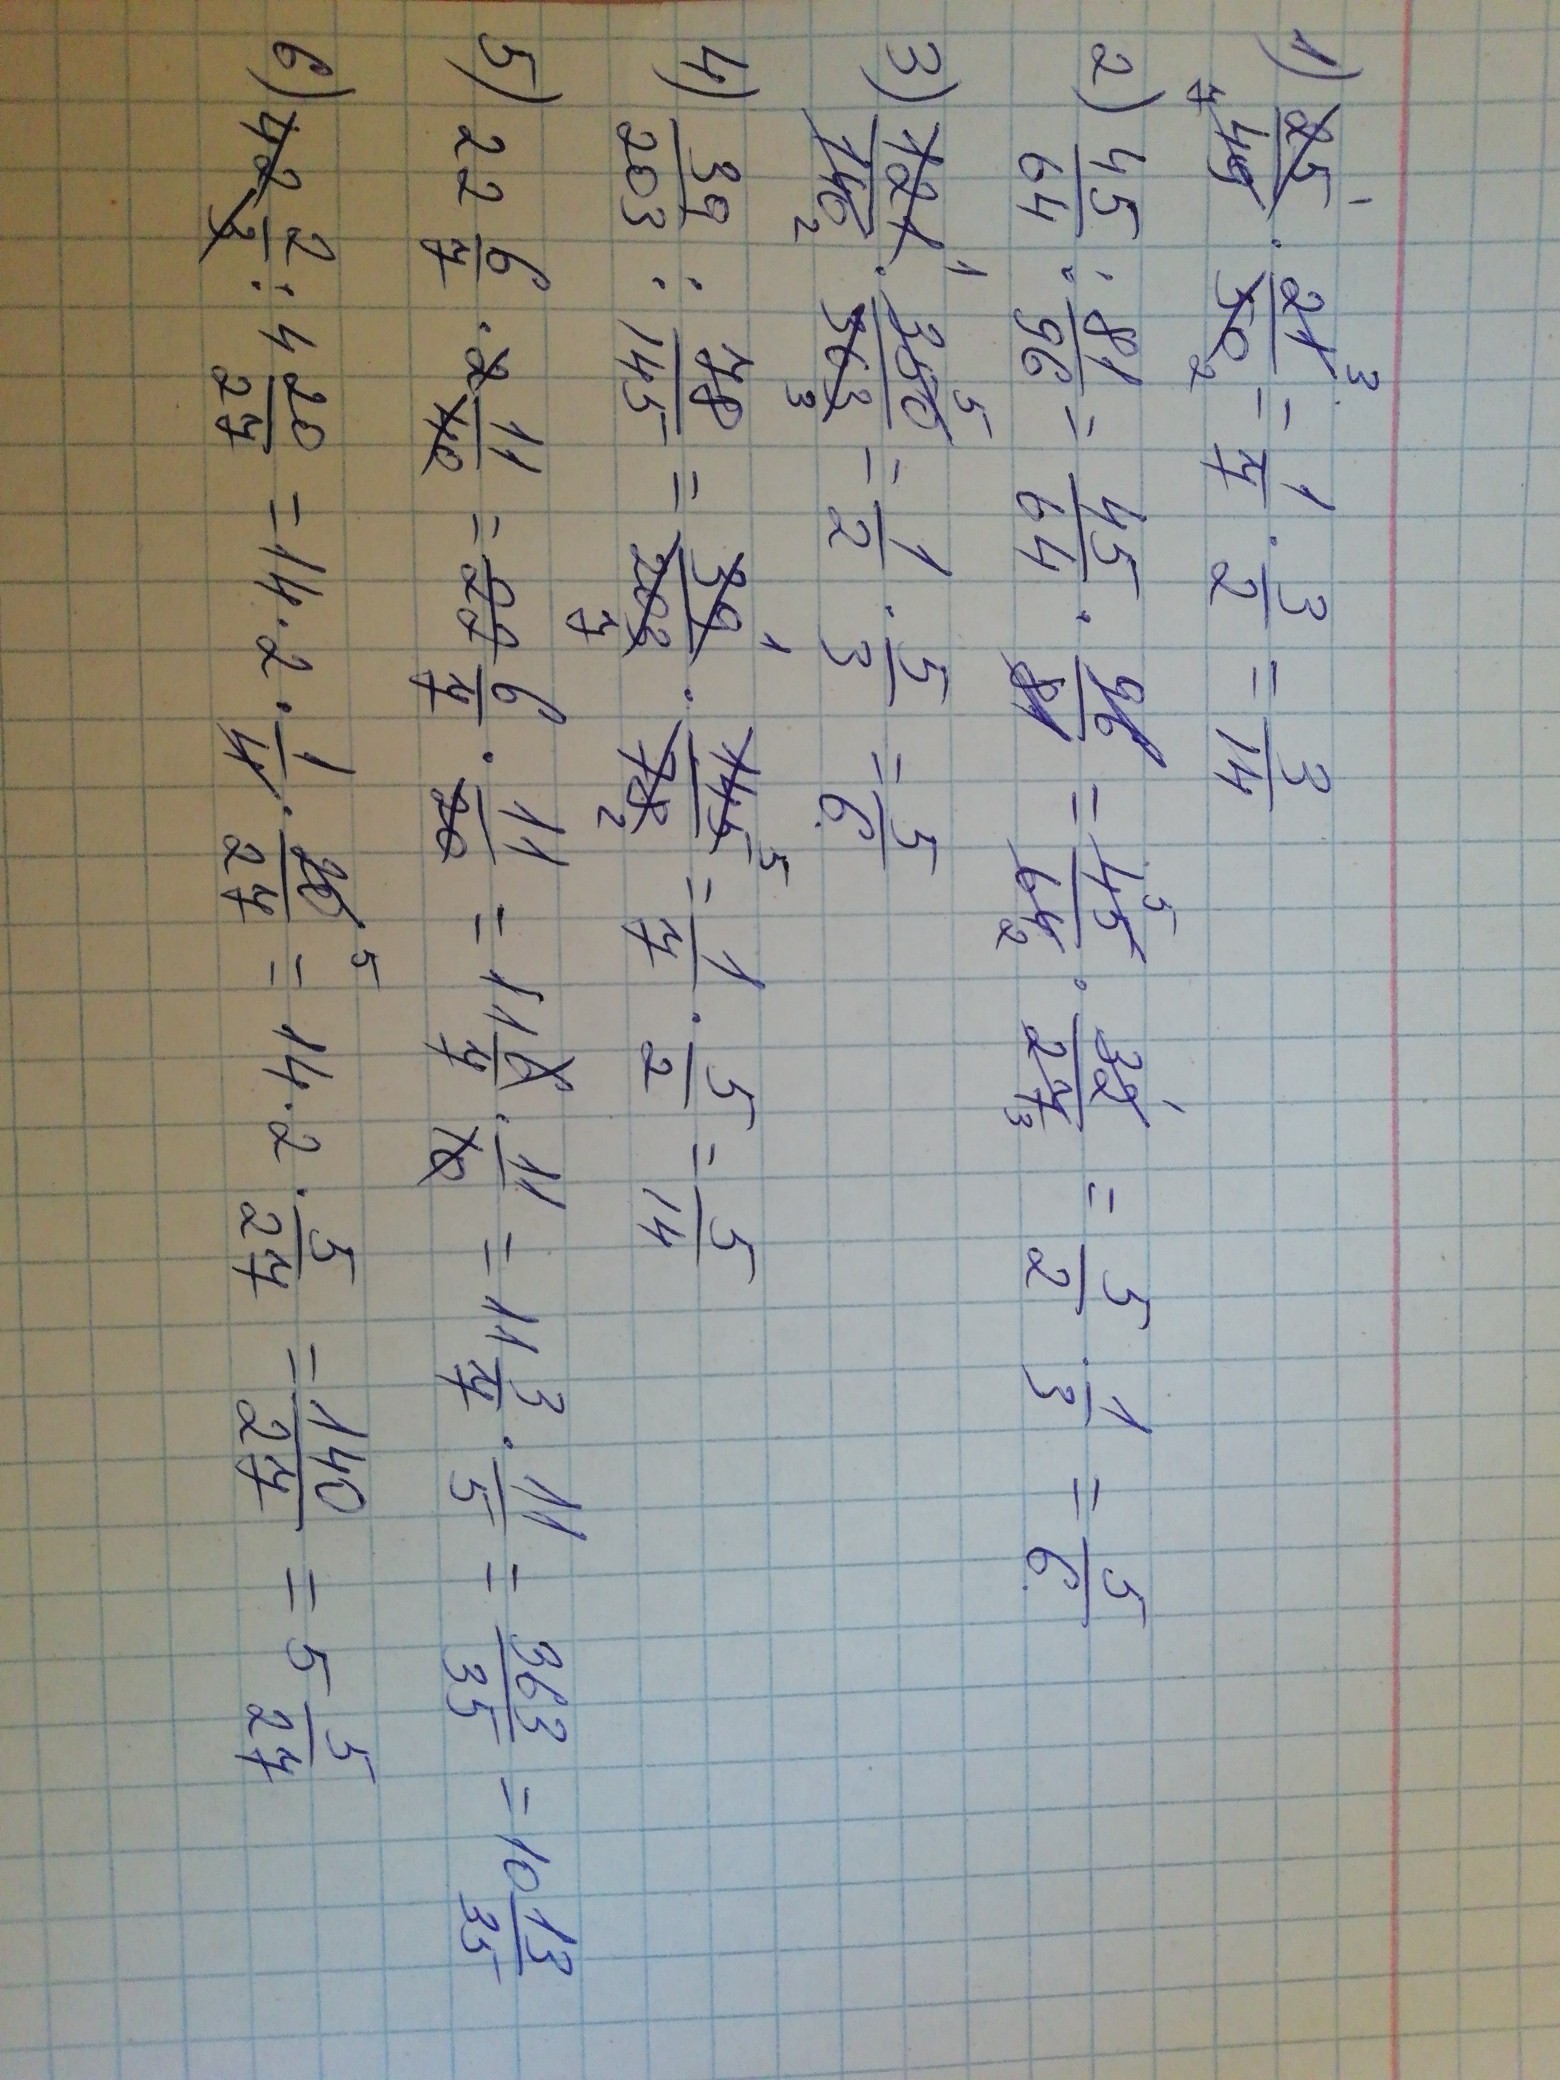 1) 25/49 · 21/50 = 1/7 · 3/2 = 3/14
2) 45/64 : 81/96 = 45/64 · 96/81 = 45/64 · 32/27 = 5/2 · 1/3 = 5/6
3) 121/140 · 350/363 = 1/2 · 5/3 = 5/6
4) 39/203 : 78/145 = 39/203 · 145/78 = 1/7 · 5/2 = 5/14
5) 22 6/7 · 2 11/40 = 22 6/7 · 11/20 = 11 6/7 · 11/10 = 11 3/7 · 11/5 = 363/35 = 10 13/35
6) 42 2/7 : 4 20/27 = 14 · 2 · 1/4 · 20/27 = 14 · 2 · 5/27 = 140/27 = 5 5/27